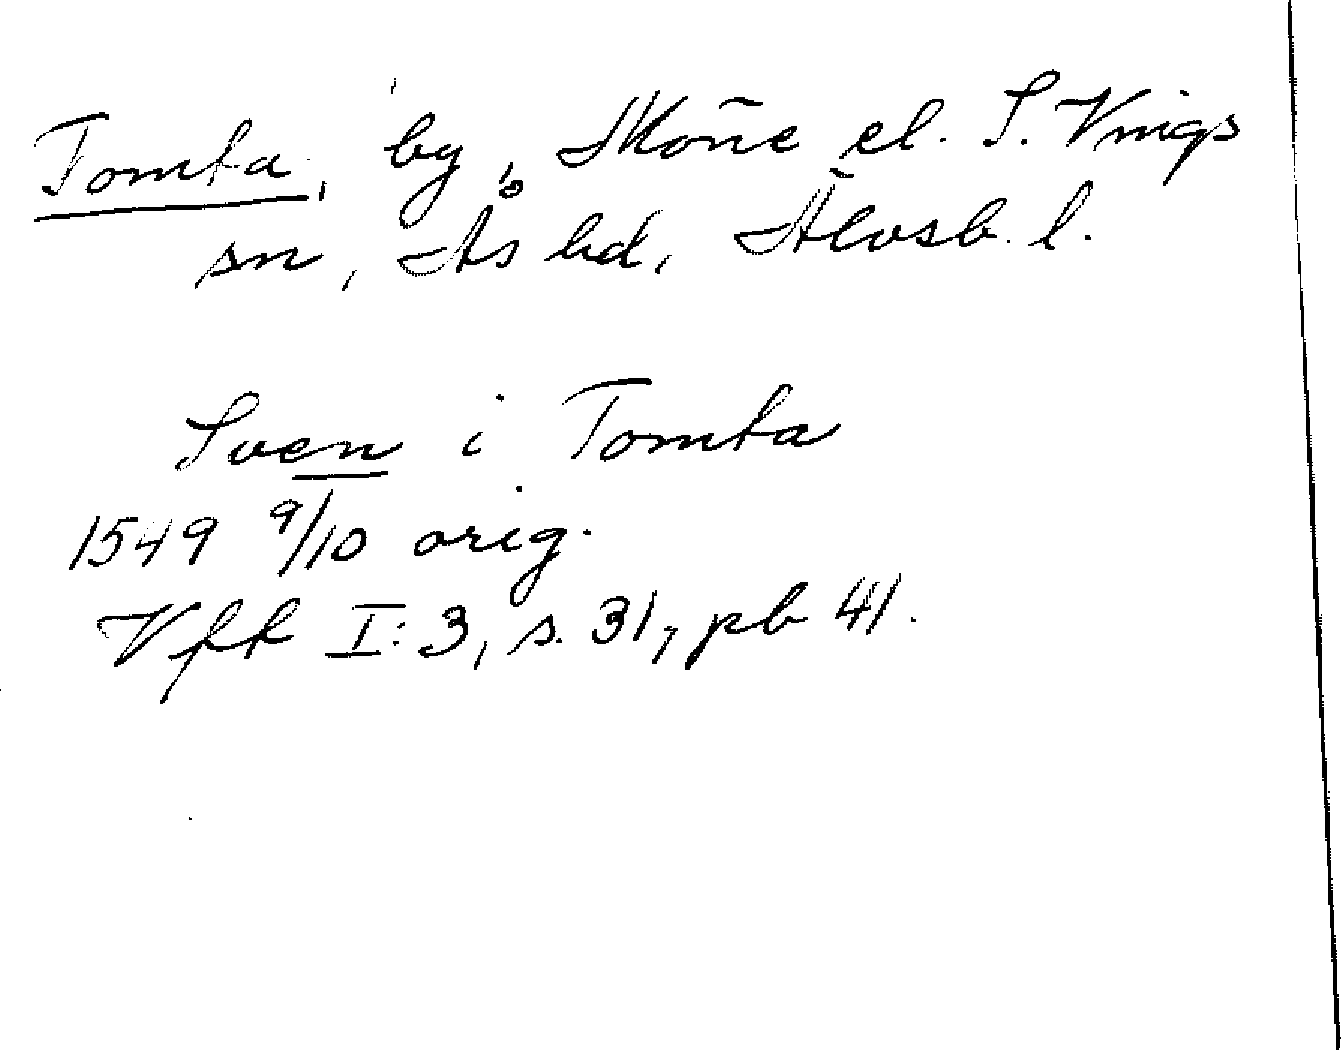 Tomta, by, Möne el. S. Vings
sn, Ås hd, Älvsb. l.
Sven i Tomta
1549 9/10 orig.
Vfk I:3, s. 31, pb 41.